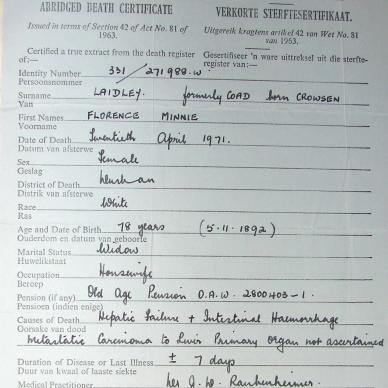 ABRIDGED DEATH CERTIFICATE
VERKORTE STERFTESERTIFIKAAT.
Issued in terms of Section 42 of Act No. 81 of 1963.
Uitgereik kragtens artikel 42 van Wet No. 81 van 1963.
Certified a true extract from the death register of:—
Gesertifiseer 'n ware uittreksel uit die sterfteregister van:—
Identity Number 331/271988.W.
Persoonsnommer
Surname LAIDLEY. formerly COAD born CROWSEN
Van
First Names FLORENCE MINNIE
Voorname
Date of Death Twentieth April 1971.
Datum van afsterwe
Sex Female
Geslag
District of Death Durban
Distrik van afsterwe
Race White
Ras
Age and Date of Birth 78 years (5.11.1892)
Ouderdom en datum van geboorte
Marital Status Widow
Huwelikstaat
Occupation Housewife
Beroep
Pension (if any) Old Age Pension O.A.W. 2800403-1.
Pensioen (indien enige)
Causes of Death Hepatic Failure + Intestinal Haemorrhage
Oorsake van dood
Metastatic Carcinoma to Liver Primary Organ not ascertained
Duration of Disease or Last Illness ± 7 days
Duur van kwaal of laaste siekte
Medical Practitioner J. W. Raubenheimer.